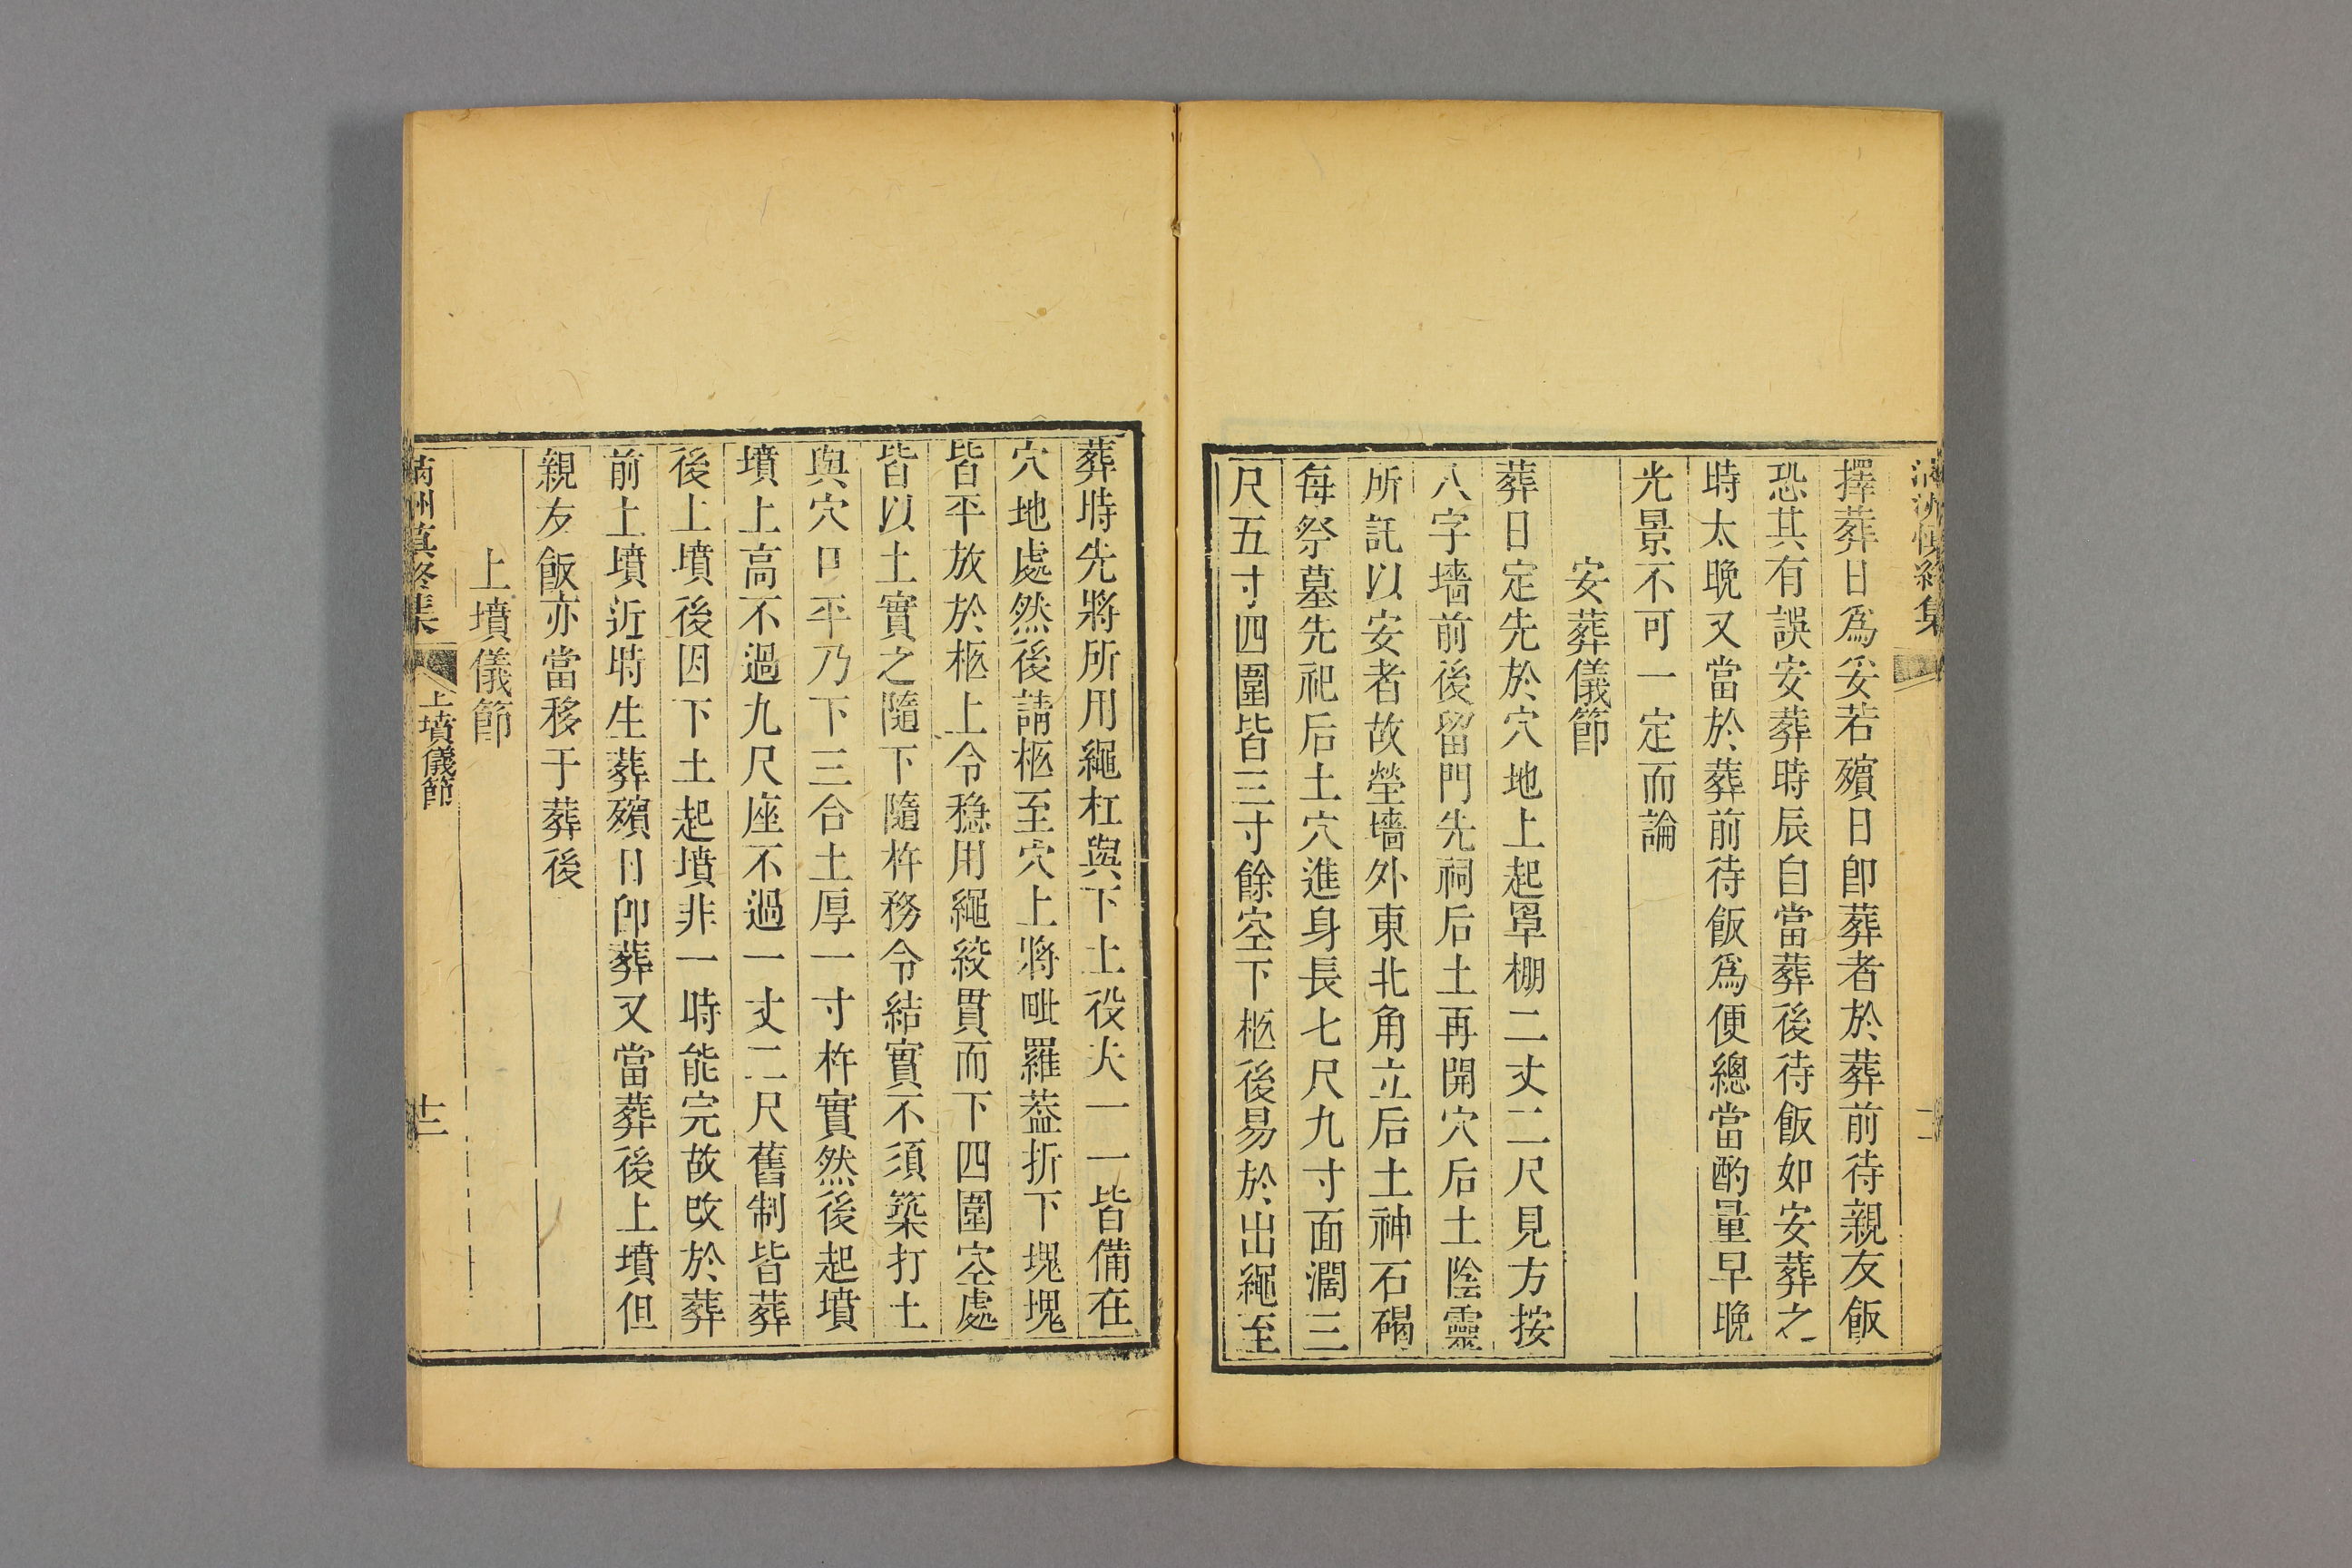 擇葬日爲妥若殯日卽葬者於葬前待親友飯
恐其有誤安葬時辰自當葬後待飯如安葬之
時太晚又當於葬前待飯爲便總當酌量早晚
光景不可一定而論
安葬儀節
葬日定先於穴地上起罩棚二丈二尺見方按
八字墻前後留門先祠后土再開穴后土陰靈
所託以安者故塋墻外東北角立后土神石碣
每祭墓先祀后土穴進身長七尺九寸面濶三
尺五寸四圍皆三寸餘空下柩後易於出繩至
葬時先將所用繩杠與下土役夫一一皆備在
穴地處然後請柩至穴上將毗羅葢折下塊塊
皆平放於柩上令穩用繩綾貫而下四圍空處
皆以土實之隨下隨杵務令結實不須築打土
與穴口平乃下三合土厚一寸杵實然後起墳
墳上高不過九尺座不過一丈二尺舊制皆葬
後上墳後因下土起墳非一時能完故改於葬
前上墳近時生葬殯日卽葬又當葬後上墳但
親友飯亦當移于葬後
上墳儀節
終集
上墳儀節
十二